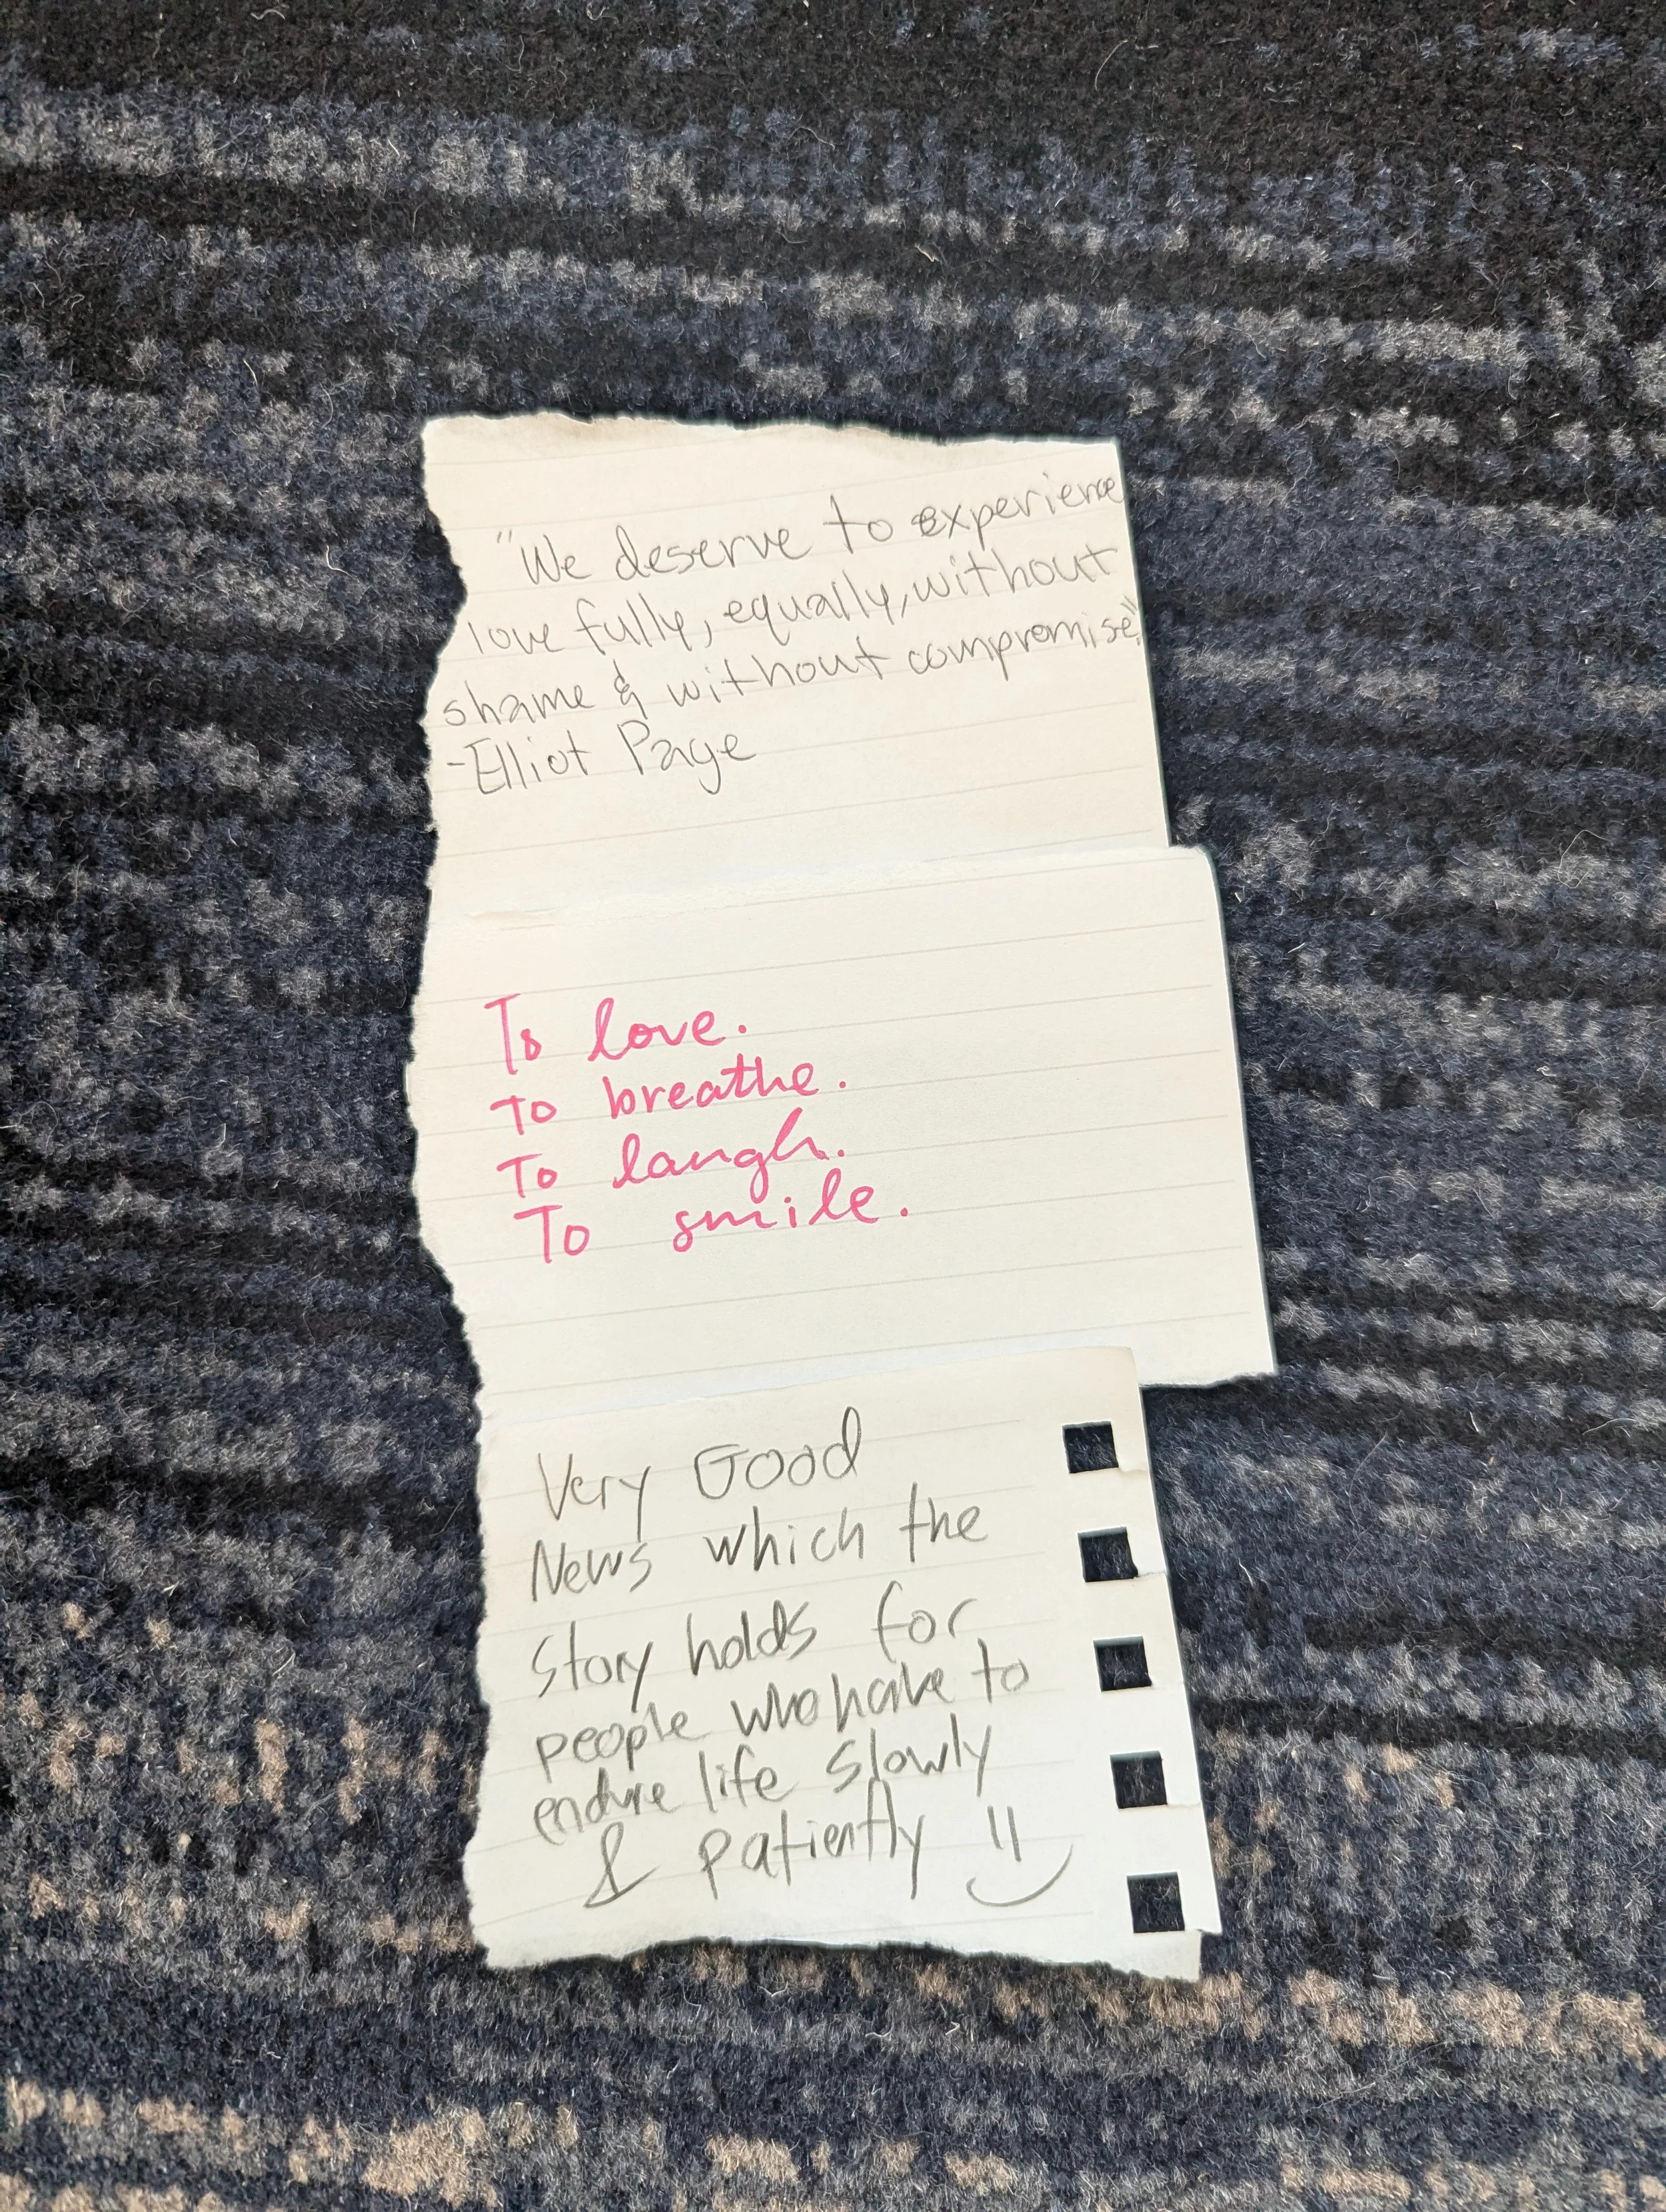 "We deserve to experience
love fully, equally, without
shame & without compromise."
-Elliot Page
To love.
To breathe.
To laugh.
To smile.
Very Good
News which the
story holds for
people who have to
endure life slowly
& patiently